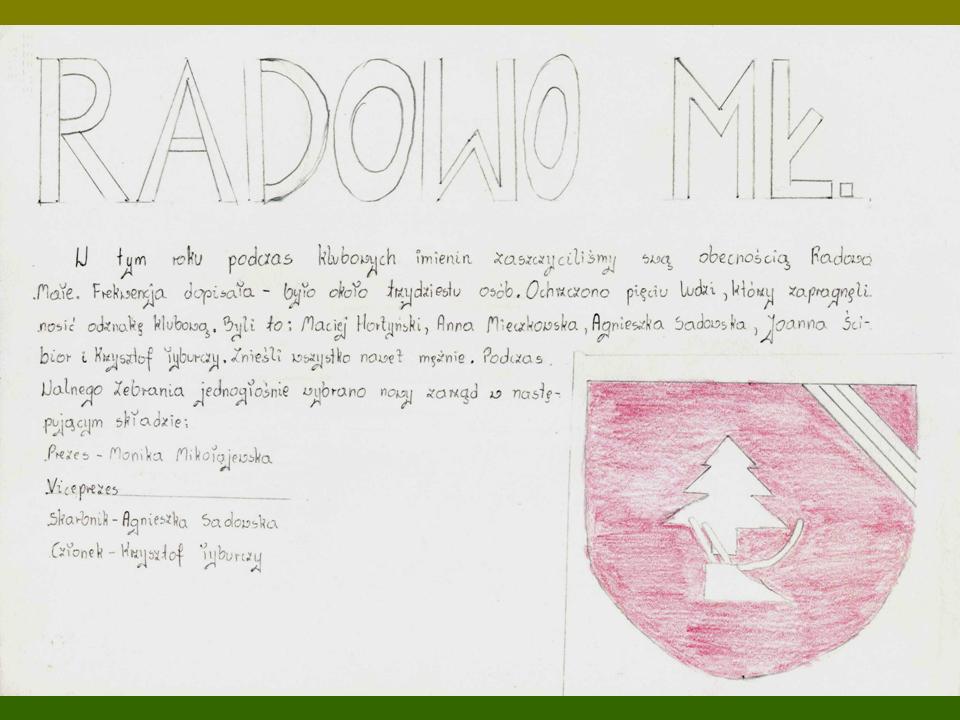 RADOWO MŁ.
W tym roku podczas klubowych imienin zaszczyciliśmy swą obecnością Radowo
Małe. Frekwencja dopisała - było około trzydziestu osób. Ochrzczono pięciu ludzi, którzy zapragnęli
nosić odznakę klubową. Byli to: Maciej Hortyński, Anna Mieczkowska, Agnieszka Sadowska, Joanna Ści-
bior i Krzysztof Tyburczy. Znieśli wszystko nawet mężnie. Podczas
Walnego Zebrania jednogłośnie wybrano nowy zarząd w nastę-
pującym składzie:
Prezes - Monika Mikołajewska
Viceprezes
Skarbnik - Agnieszka Sadowska
Członek - Krzysztof Tyburczy